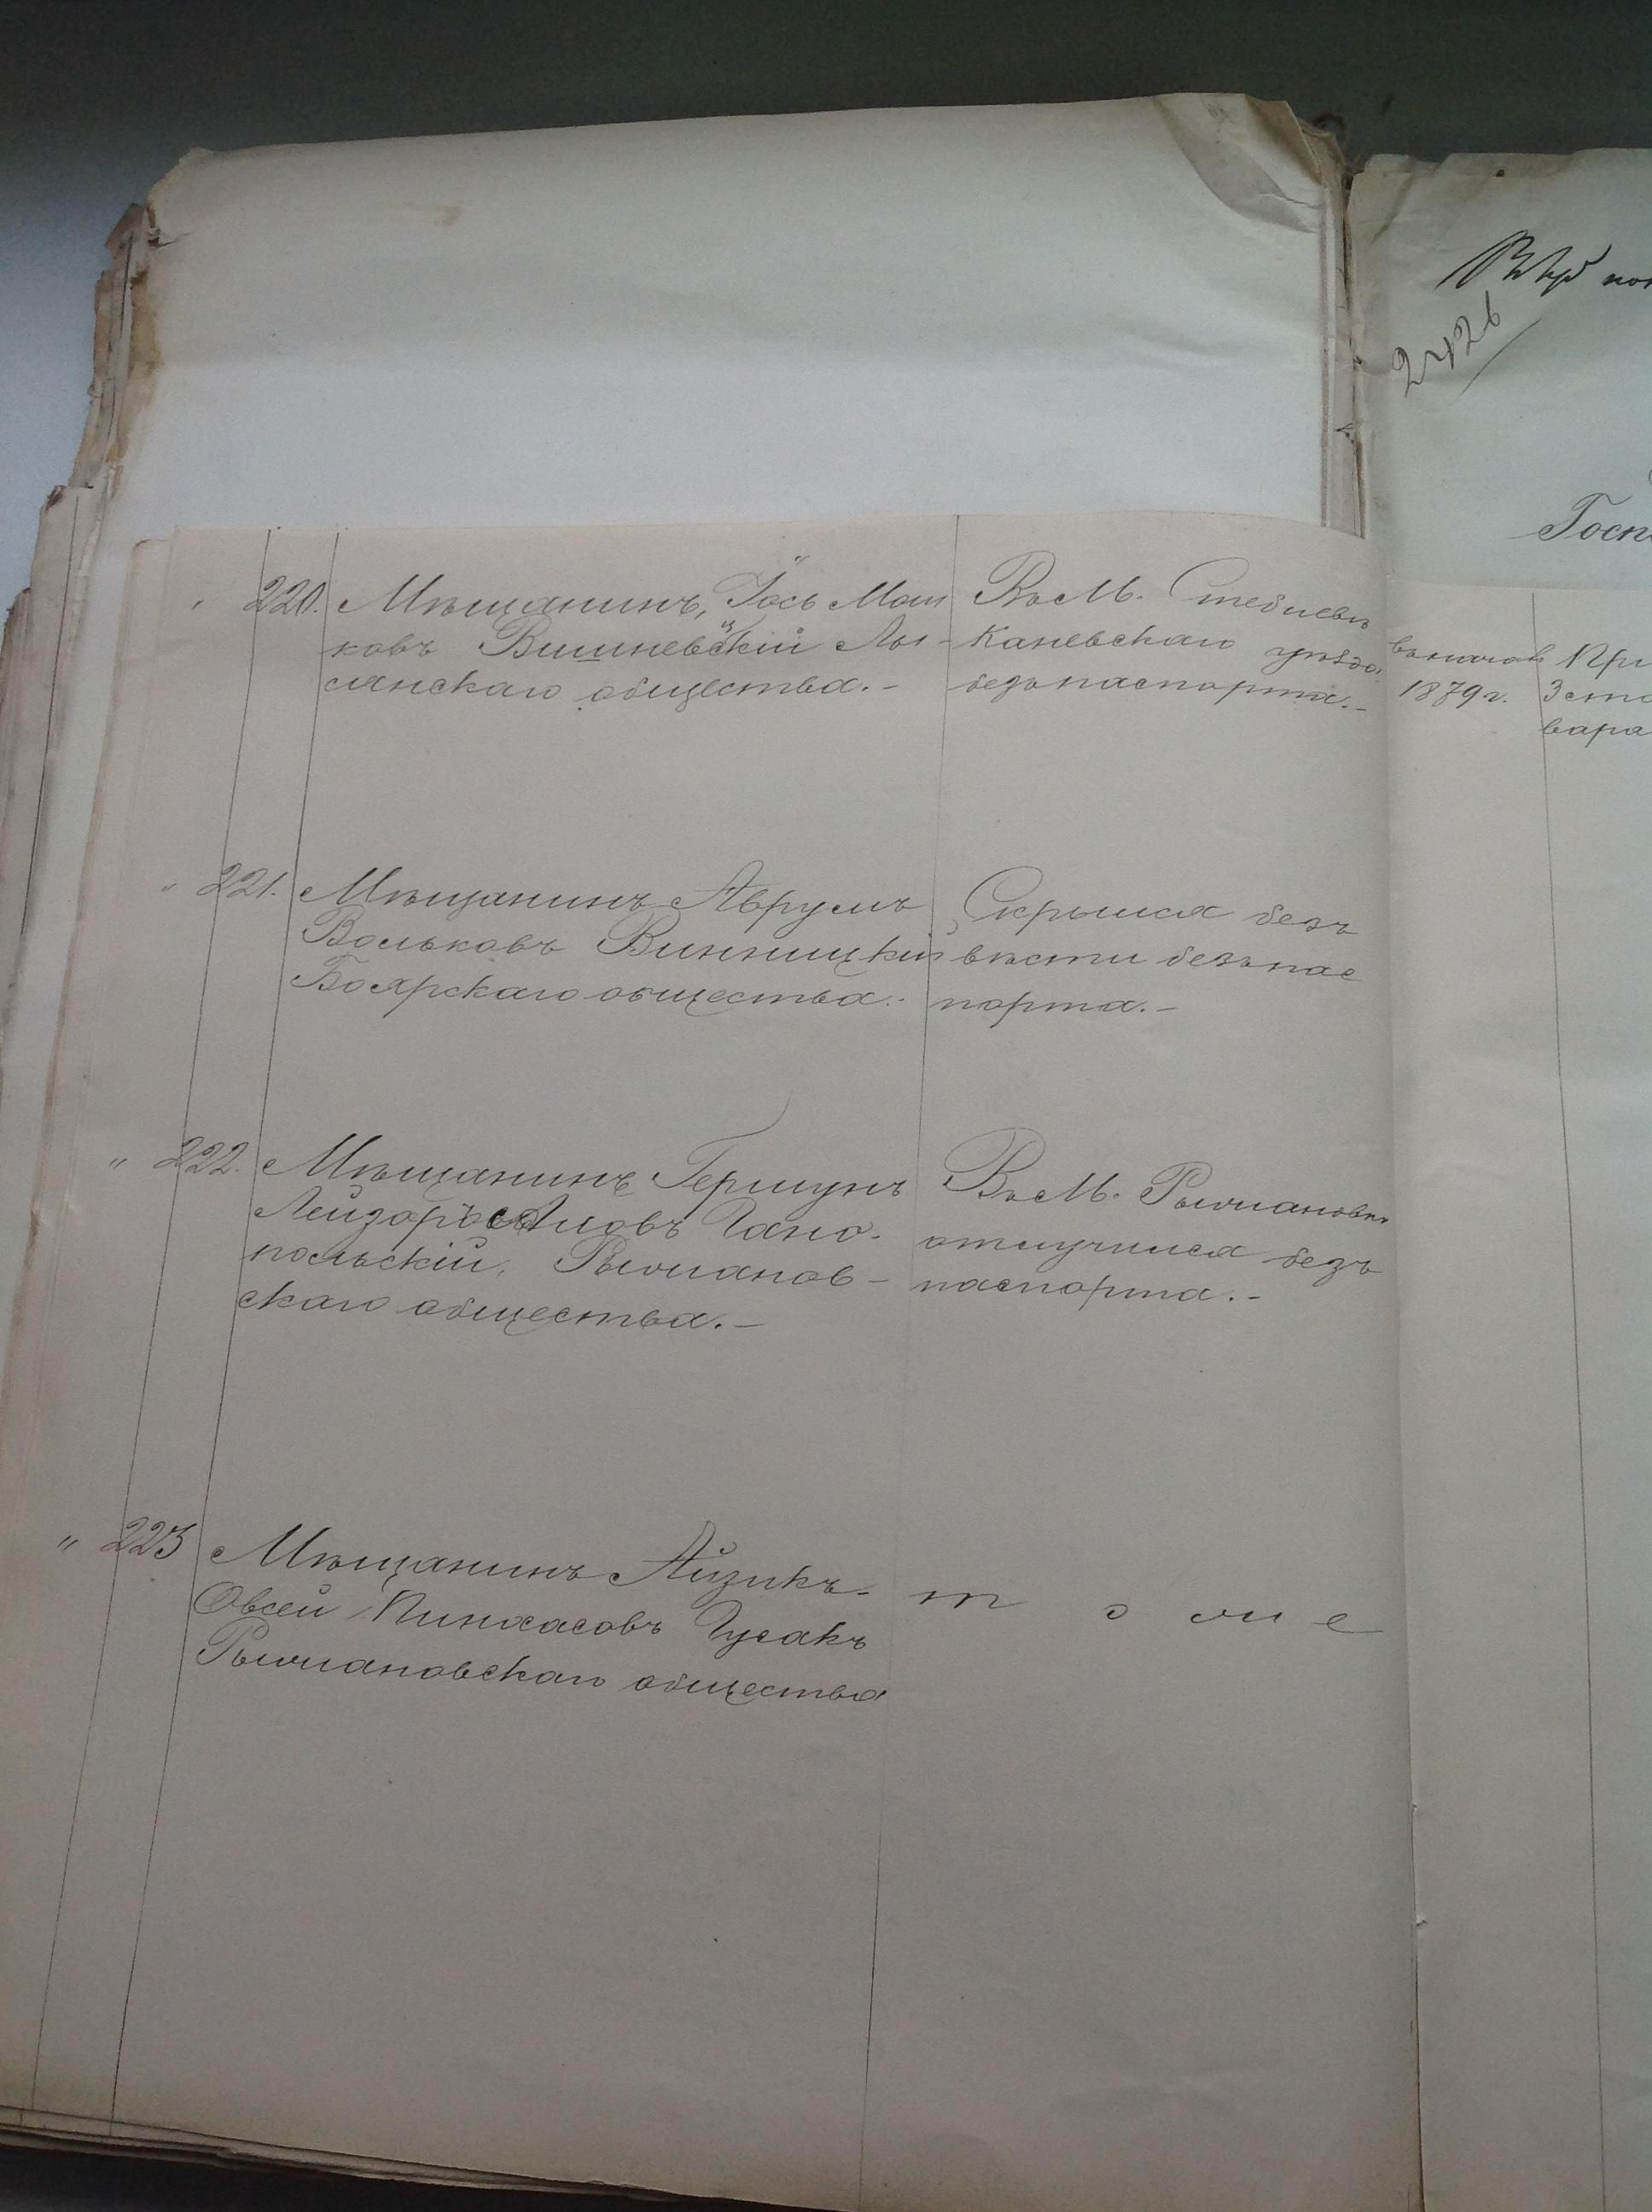 2426
Госп
220. Мѣщанинъ, Іось Мош
ковъ Вишневскій Лы-
сянскаго общества.-
Въ М. Стеблевѣ
Каневскаго уѣзда,
безъ паспорта.-
въ началѣ
1879 г.
При
Зсте
вара
" 221. Мѣщанинъ Аврумъ
Вольковъ Винницкій
Боярскаго общества.-
Скрылся безъ
вѣсти безъ пас
порта.-
" 222. Мѣщанинъ Гершунъ
Гано-
польскій, Рыжанов-
скаго общества.-
Въ М. Рыжановкѣ
отлучился безъ
паспорта.-
" 223 Мѣщанинъ Айзикъ-
Овсей Пинхасовъ Гусакъ
Рыжановскаго общества
тоже